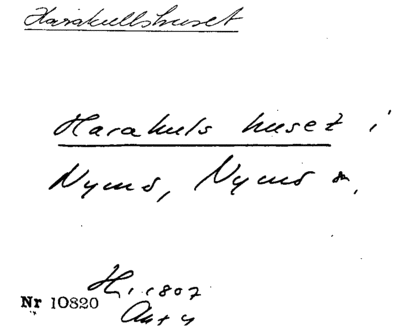 Harakullshuset
Harakuls huset i
Nymö, Nymö sn,
H. 1807
Nr 10820
Akt 4